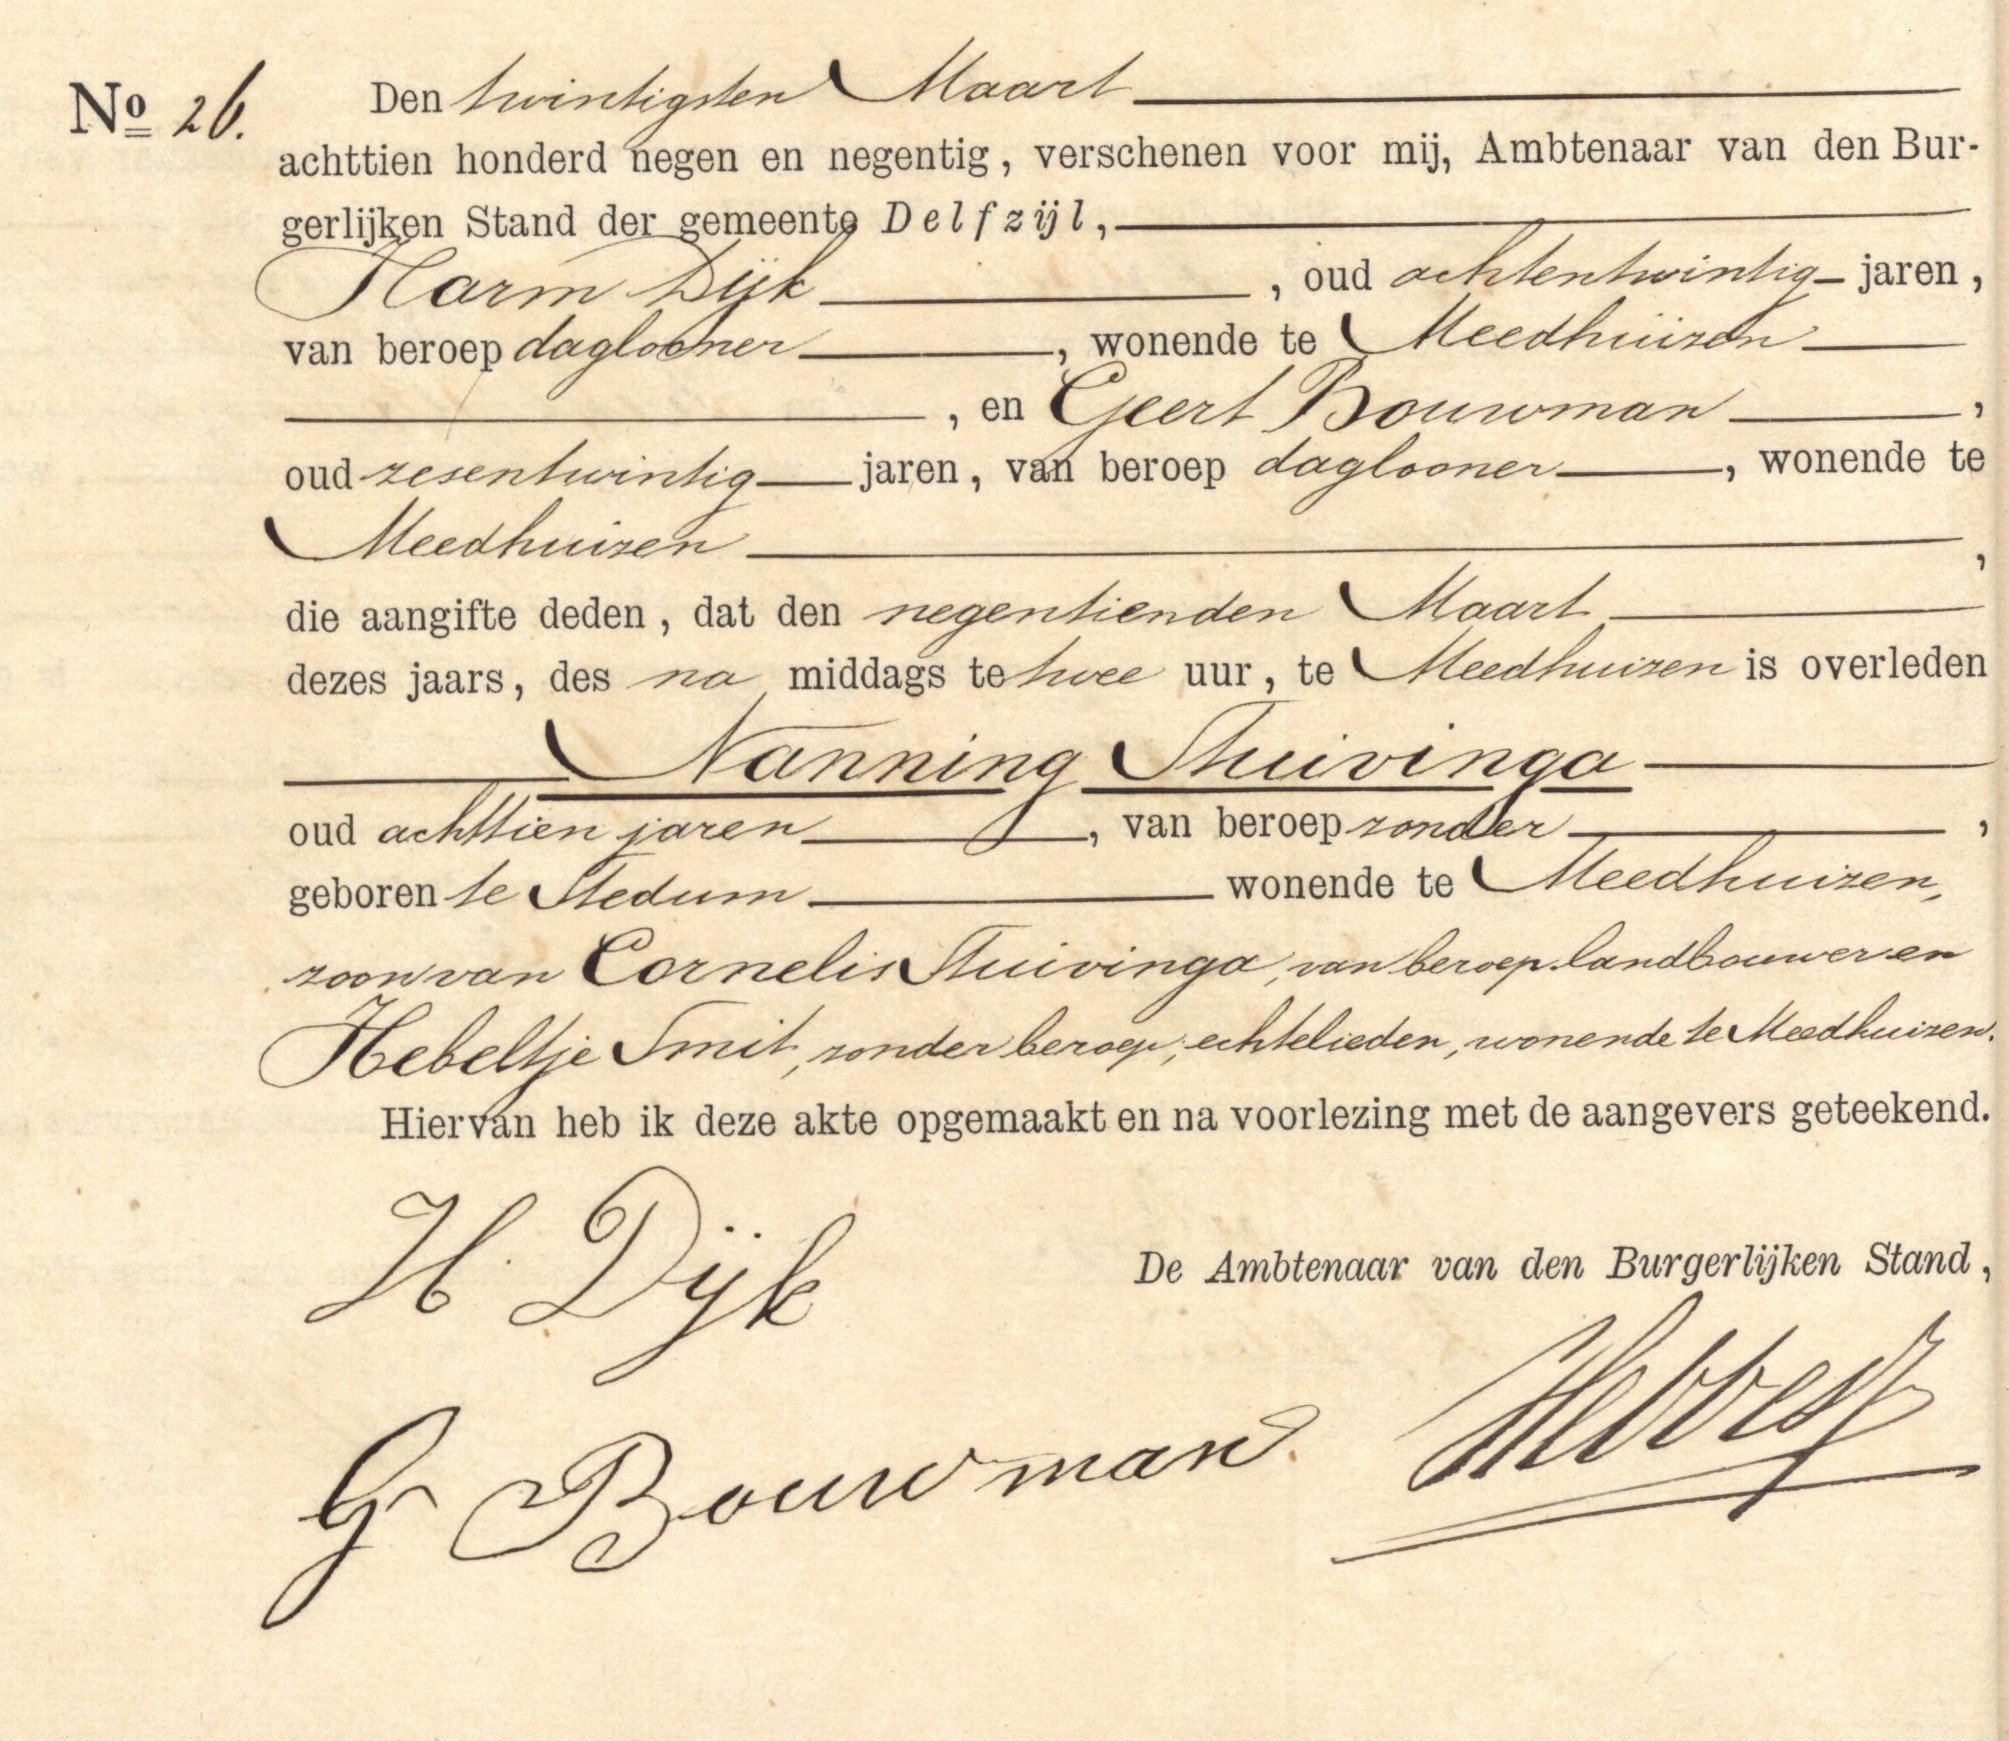 No 26. Den twintigsten Maart
achttien honderd negen en negentig, verschenen voor mij, Ambtenaar van den Bur-
gerlijken Stand der gemeente Delfzijl,
Harm Dijk, oud achtentwintig jaren,
van beroep daglooner, wonende te Meedhuizen
, en Geert Bouwman,
oud zesentwintig jaren, van beroep daglooner, wonende te
Meedhuizen,
die aangifte deden, dat den negentienden Maart
dezes jaars, des na middags te twee uur, te Meedhuizen is overleden
Nanning Stuivinga
oud achttien jaren, van beroep zonder,
geboren te Stedum wonende te Meedhuizen,
zoon van Cornelis Stuivinga, van beroep landbouwer en
Hebeltje Smit, zonder beroep, echtelieden, wonende te Meedhuizen.
Hiervan heb ik deze akte opgemaakt en na voorlezing met de aangevers geteekend.
H. Dijk
De Ambtenaar van den Burgerlijken Stand,
G Bouwman